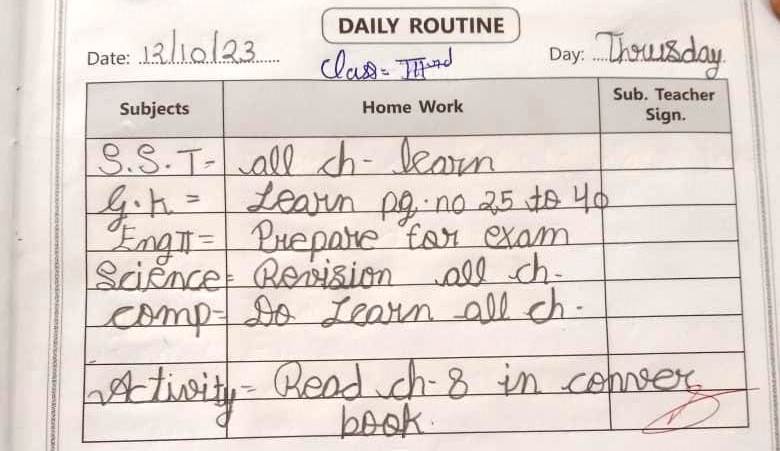 DAILY ROUTINE
Date: 12/10/23 Day: Thrusday
Class = IIIrd
Subjects Home Work Sub. Teacher Sign.
S.S.T- all ch- learn
G.K = Learn pg. no 25 to 40
Eng II = Prepare for exam
Science = Revision all ch-
comp- Do Learn all ch-
Activity - Read ch-8 in conver
book.